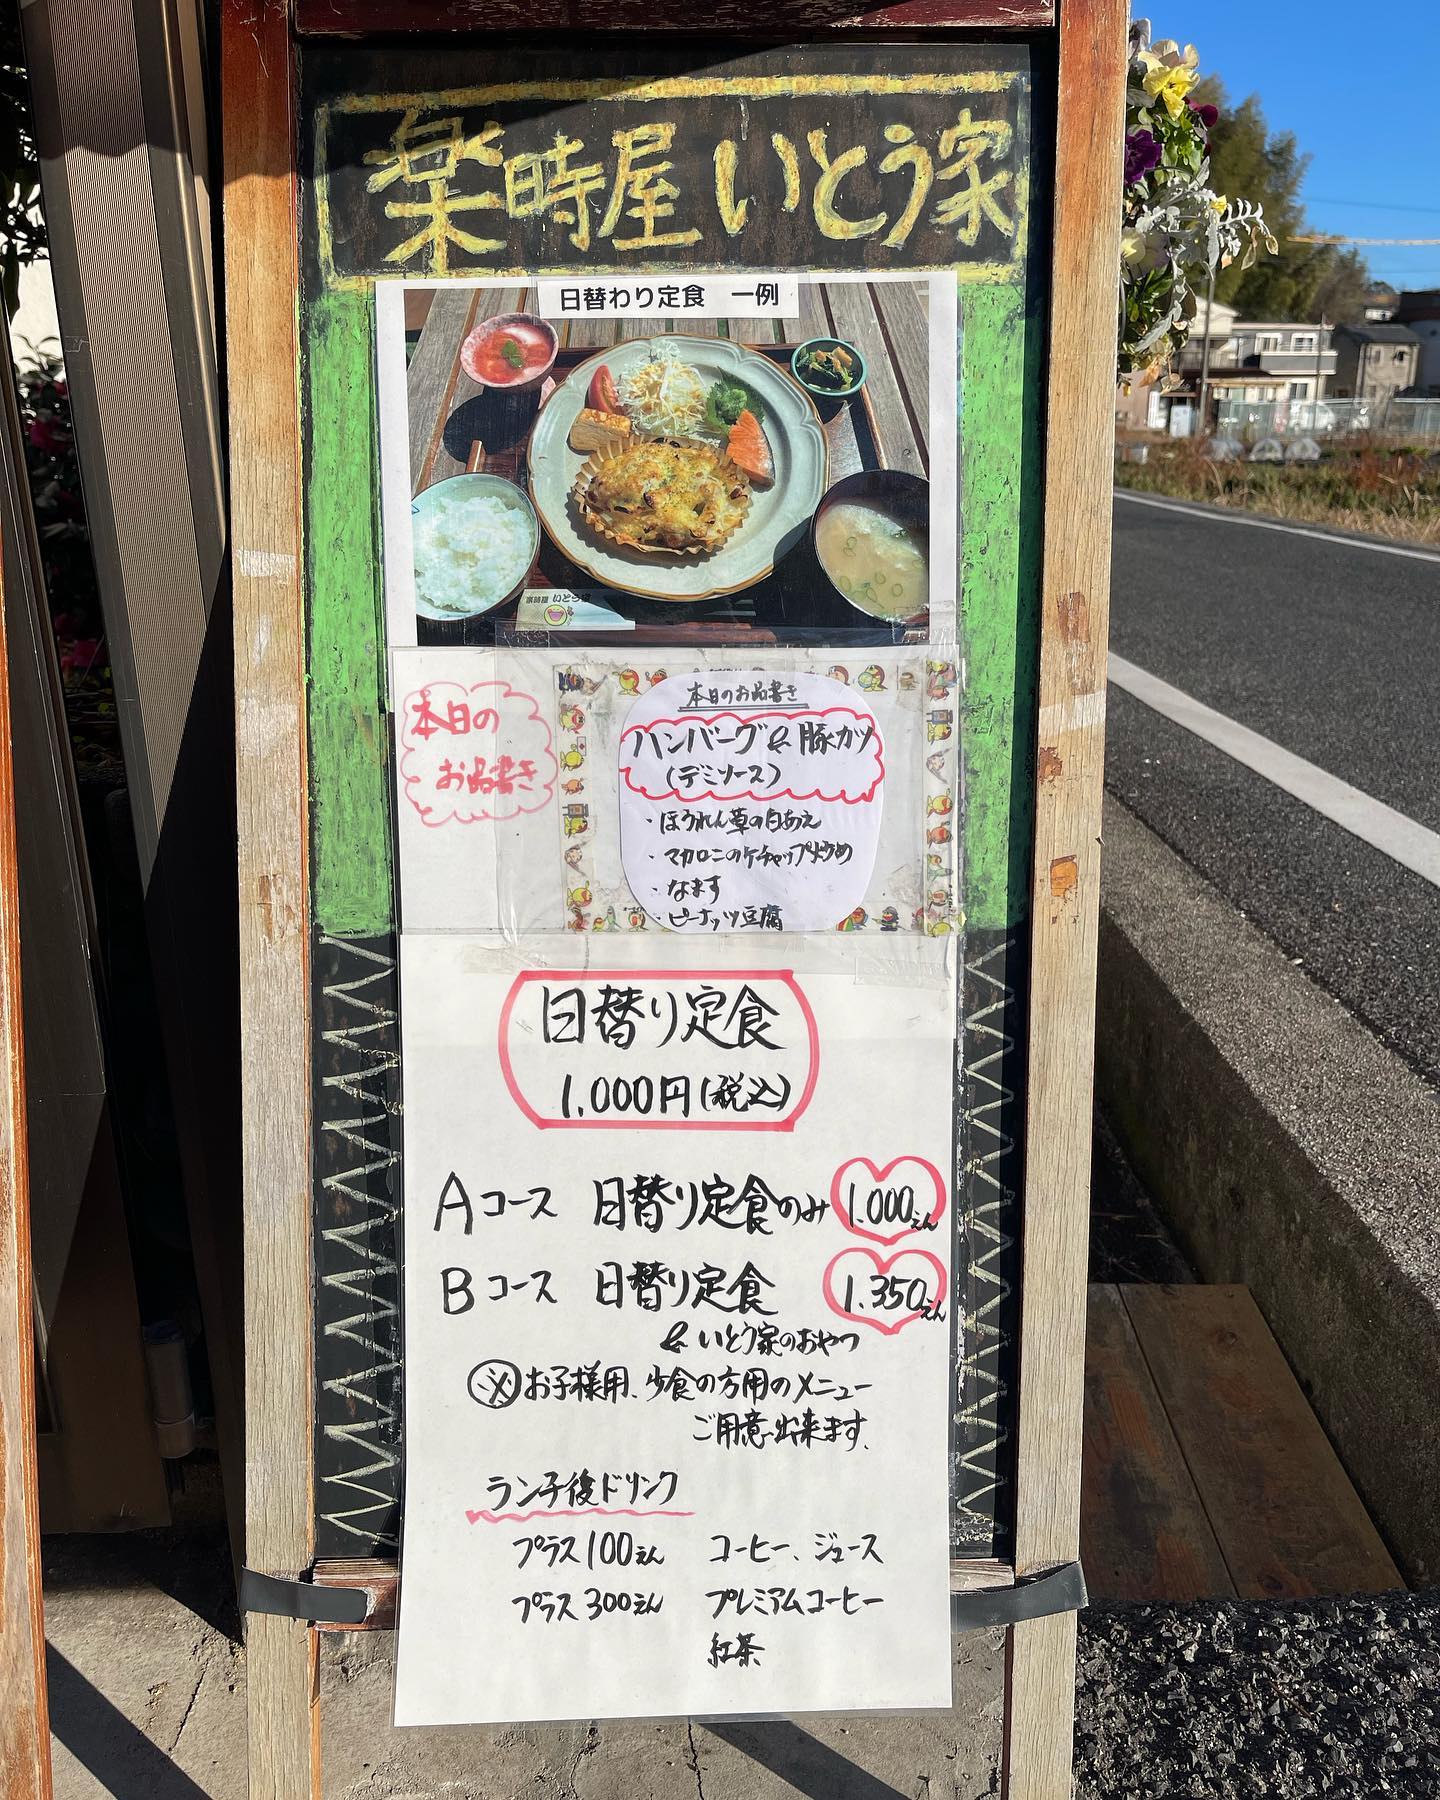 楽時屋 いとう家
日替わり定食 一例
楽時屋 いとう家
本日の
お品書き
本日のお品書き
ハンバーグ&豚カツ
(デミソース)
・ほうれん草の白あえ
・マカロニのケチャップ炒め
・なます
・ピーナッツ豆腐
日替り定食
1,000円(税込)
Aコース 日替り定食のみ 1.000えん
Bコース 日替り定食 1.350えん
& いとう家のおやつ
※お子様用、少食の方用のメニュー
ご用意出来ます。
ランチ後ドリンク
プラス100えん コーヒー、ジュース
プラス300えん プレミアムコーヒー
紅茶